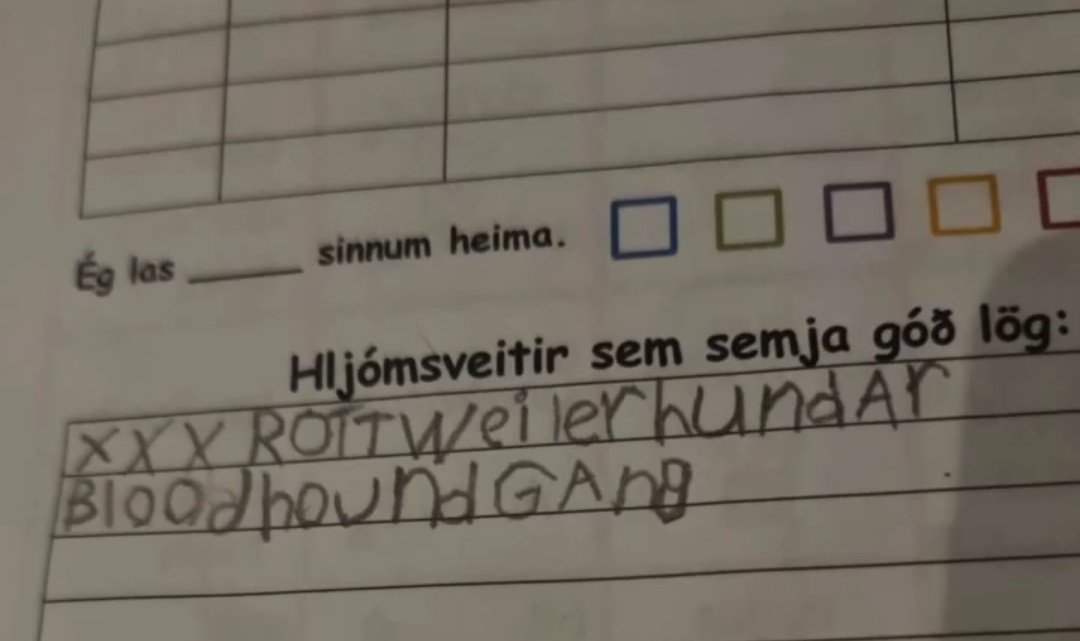 Ég las ______ sinnum heima.
Hljómsveitir sem semja góð lög:
XXX ROTTWeilerhundAr
BloodhoundGAng